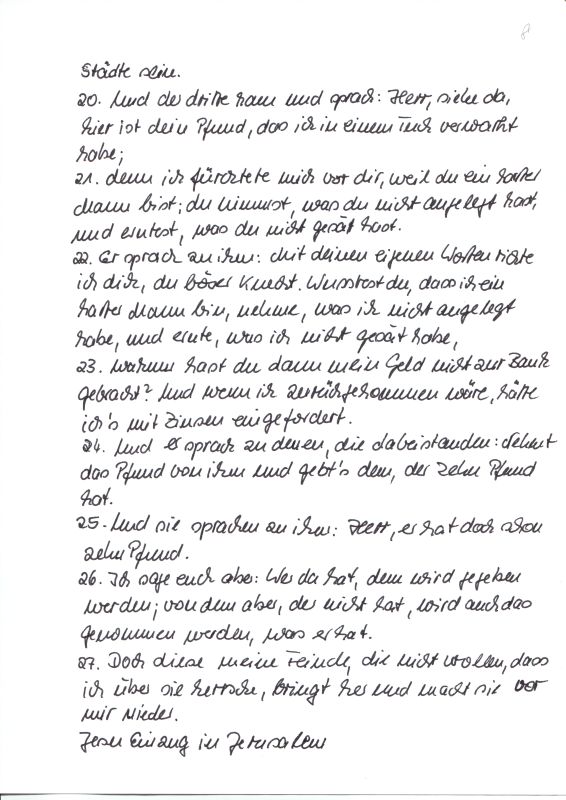 8
Städte sein.
20. Und der dritte kam und sprach: Herr, siehe da,
hier ist dein Pfund, das ich in einem Tuch verwahrt
habe;
21. denn ich fürchtete mich vor dir, weil du ein harter
Mann bist; du nimmst, was du nicht angelegt hast,
und erntest, was du nicht gesät hast.
22. Er sprach zu ihm: Mit deinen eigenen Worten richte
ich dich, du böser Knecht. Wusstest du, dass ich ein
harter Mann bin, nehme, was ich nicht angelegt
habe, und ernte, was ich nicht gesät habe,
23. warum hast du dann mein Geld nicht zur Bank
gebracht? Und wenn ich zurückgekommen wäre, hätte
ich's mit Zinsen eingefordert.
24. Und er sprach zu denen, die dabeistanden: Nehmt
das Pfund von ihm und gebt's dem, der zehn Pfund
hat.
25. Und sie sprachen zu ihm: Herr, er hat doch schon
zehn Pfund.
26. Ich sage euch aber: Wer da hat, dem wird gegeben
werden; von dem aber, der nicht hat, wird auch das
genommen werden, was er hat.
27. Doch diese meine Feinde, die nicht wollen, dass
ich über sie herrsche, bringt her und macht sie vor
mir nieder.
Jesu Einzug in Jerusalem